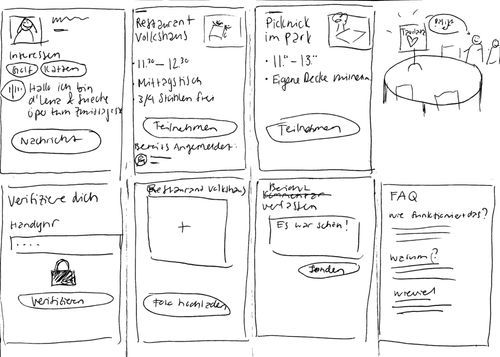 Interessen
Golf Katzen
Hallo ich bin
d'Lena & sueche
öper zum Zmittagesse
Nachricht
Restaurant
Volkshaus
11.30 – 12.30
Mittagstisch
3/9 Stühlen frei
Teilnehmen
Bereits Angemeldet:
Picknick
im Park
11.00 – 13.00
Eigene Decke mitnehmen
Teilnehmen
Verifiziere dich
Handynr
Verifizieren
Restaurant Volkshaus
+
Foto hochladen
Bericht
Kommentar
verfassen
Es war schön!
Senden
FAQ
Wie funktioniert das?
Warum?
Wieviel